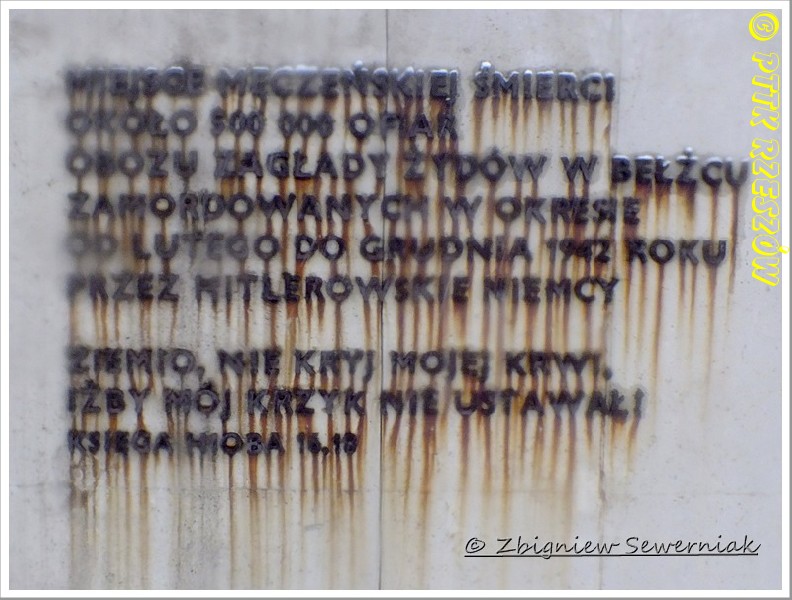 MIEJSCE MĘCZEŃSKIEJ ŚMIERCI
OKOŁO 500 000 OFIAR
OBOZU ZAGŁADY ŻYDÓW W BEŁŻCU
ZAMORDOWANYCH W OKRESIE
OD LUTEGO DO GRUDNIA 1942 ROKU
PRZEZ HITLEROWSKIE NIEMCY
ZIEMIO, NIE KRYJ MOJEJ KRWI,
IŻBY MÓJ KRZYK NIE USTAWAŁ!
KSIĘGA HIOBA 16,18
© Zbigniew Sewerniak
© PTTK RZESZÓW